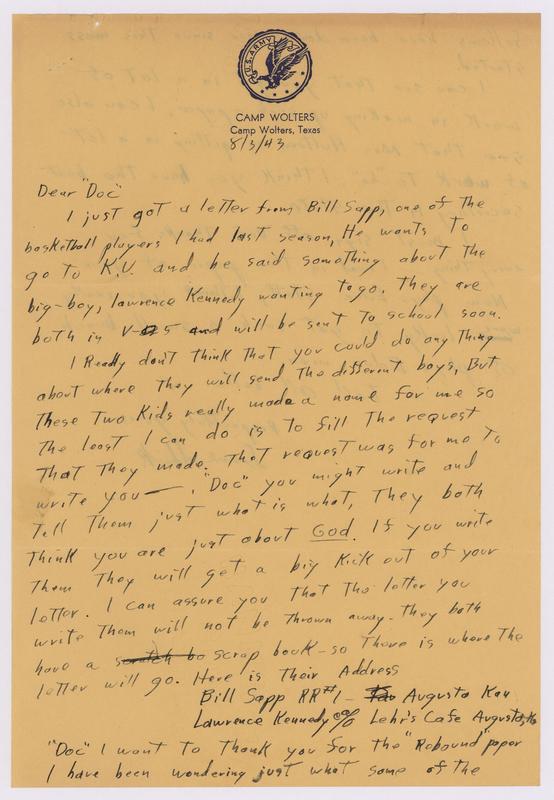 U.S. ARMY
CAMP WOLTERS
Camp Wolters, Texas
8/3/43
Dear "Doc"
I just got a letter from Bill Sapp, one of the
basketball players I had last season, He wants to
go to K.U. and he said something about the
big-boy, lawrence Kennedy wanting to go. They are
both in V-5 and will be sent to school soon.
I Really don't think that you could do any thing
about where they will send the different boys, But
these two kids really made a name for me so
the least I can do is to fill the request
that they made. That request was for me to
write you —. "Doc" you might write and
tell them just what is what, They both
think you are just about God. If you write
them they will get a big kick out of your
letter. I can assure you that the letter you
write them will not be thrown away - they both
have a scrap book - so there is where the
letter will go. Here is their Address
Bill Sapp RR#1 - Augusta Kan
Lawrence Kennedy c/o Lehr's Cafe Augusta, Ks
"Doc" I want to thank you for the "Rebound" paper
I have been wondering just what some of the